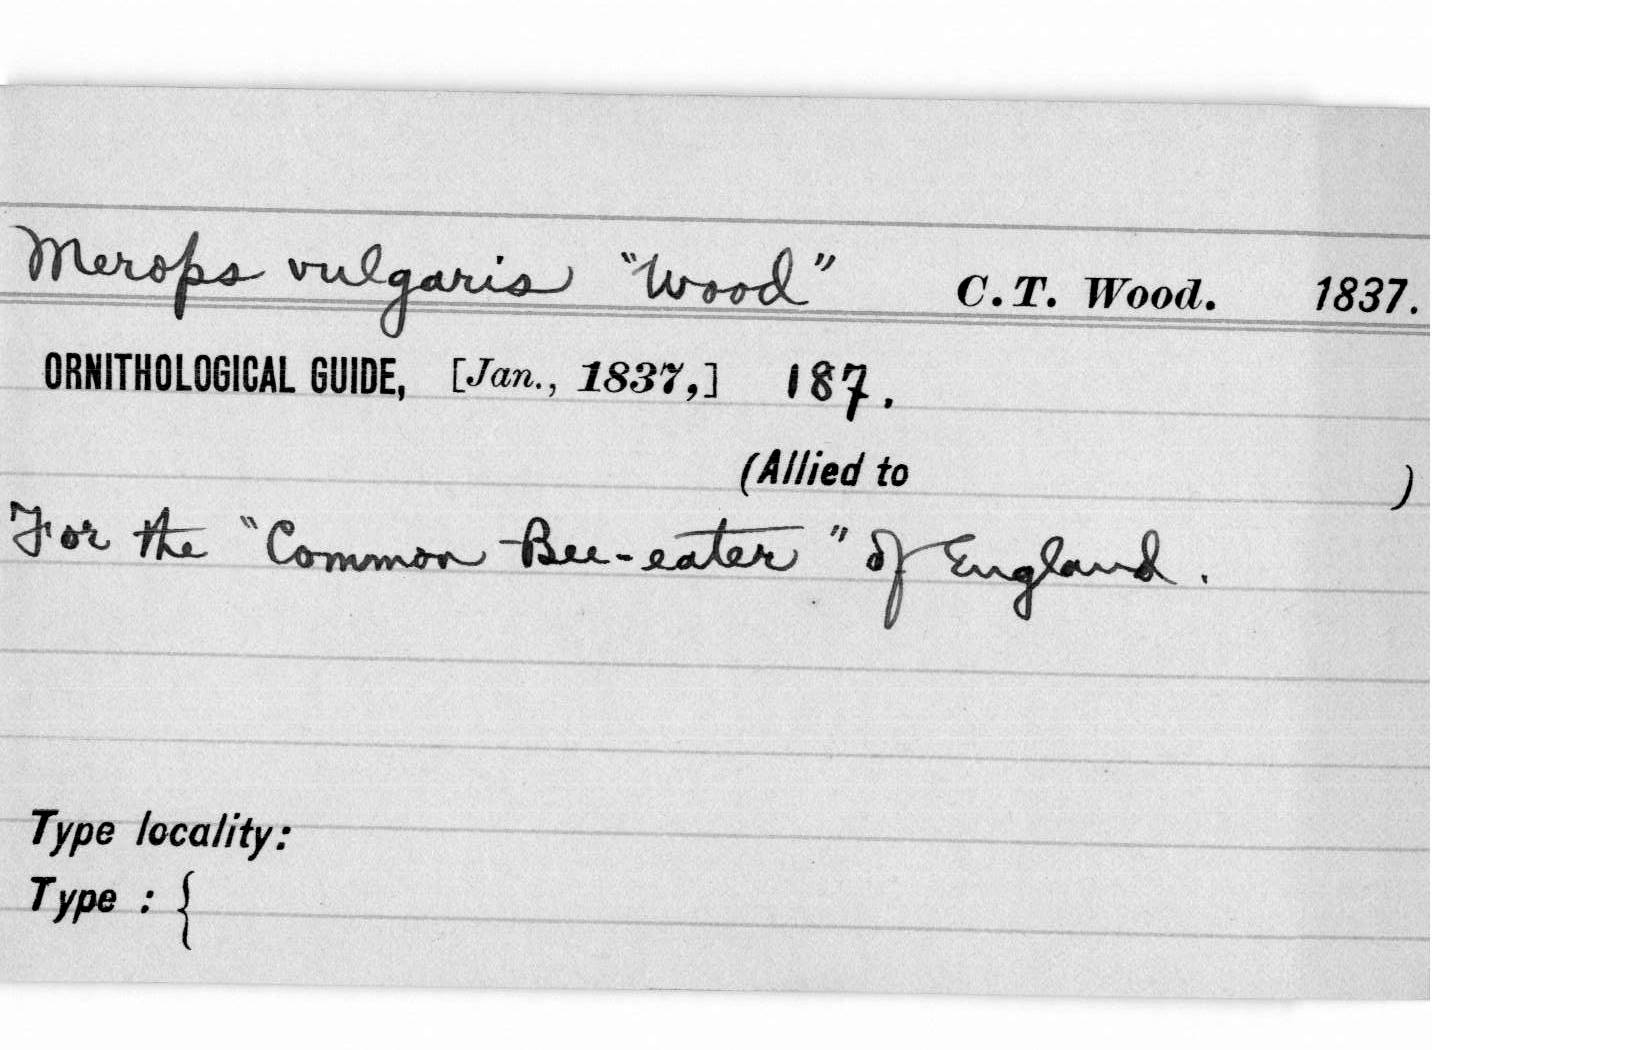 Merops vulgaris "Wood" C. T. Wood. 1837.
ORNITHOLOGICAL GUIDE, [Jan., 1837,] 187.
(Allied to )
For the "Common Bee-eater" of England.
Type locality:
Type : {